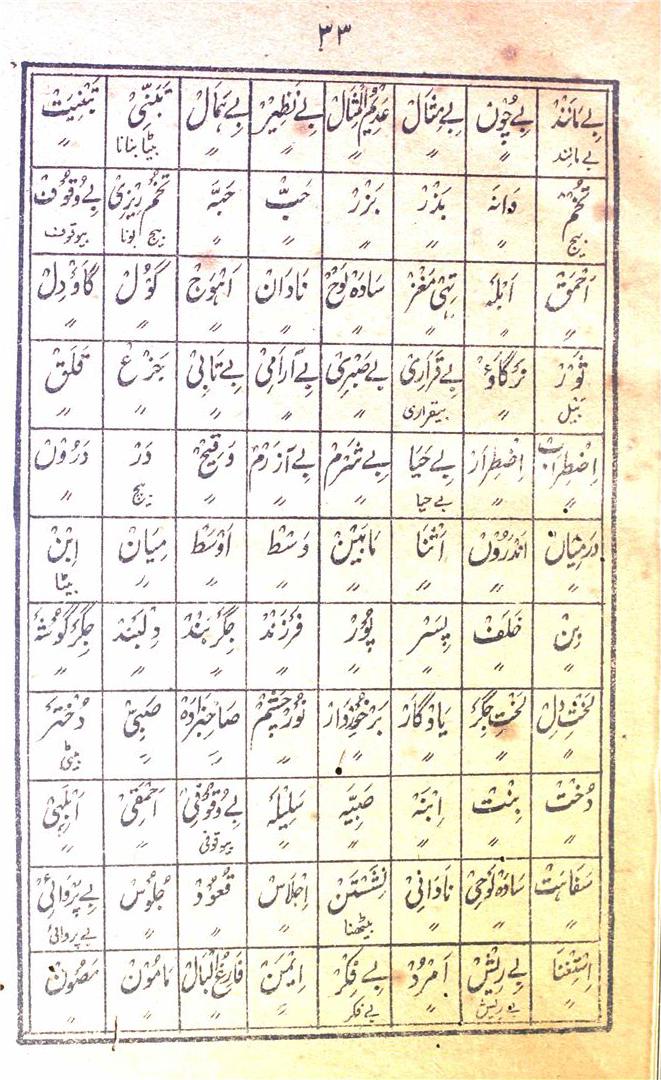 ۳۳
بے مانند بے چون بے مثال عدیم المثال بے نظیر بے ہمال تبنّی تبنیت
بے مانند 〃 〃 〃 〃 〃 بیٹا بنانا 〃
تخم دانہ بذر بزر حبّ حبّہ تخم ریزی بے وقوف
بیج 〃 〃 〃 〃 〃 بیج بونا بیوقوف
احمق ابلہ تہی مغز سادہ لوح نادان اہوج گول گاؤدل
〃 〃 〃 〃 〃 〃 〃 〃
ثور نرگاؤ بے قراری بے صبری بے آرامی بے تابی جزع قلق
بیل 〃 بیقراری 〃 〃 〃 〃 〃
اضطراب اضطرار بے حیا بے شرم بے آزرم وقیح در درون
〃 〃 بے حیا 〃 〃 〃 بیچ 〃
درمیان اندرون اثنا مابین وسط اوسط میان ابن
〃 〃 〃 〃 〃 〃 〃 بیٹا
بن خلف پسر پور فرزند جگربند دلبند جگرگوشہ
〃 〃 〃 〃 〃 〃 〃 〃
لخت دل لخت جگر یادگار برخوردار نورچشم صاحبزادہ صبی دختر
〃 〃 〃 〃 〃 〃 〃 بیٹی
دخت بنت ابنہ صبیہ سلیلہ بے وقوفی احمقی ابلہی
〃 〃 〃 〃 〃 بیوقوفی 〃 〃
سفاہت سادہ لوحی نادانی نشستن اجلاس قعود جلوس بے پروائی
〃 〃 〃 بیٹھنا 〃 〃 〃 بے پروائی
استغنا بے ریش امرد بے فکر ایمن فارغ البال مامون مصئون
〃 بے ریش 〃 بے فکر 〃 〃 〃 〃